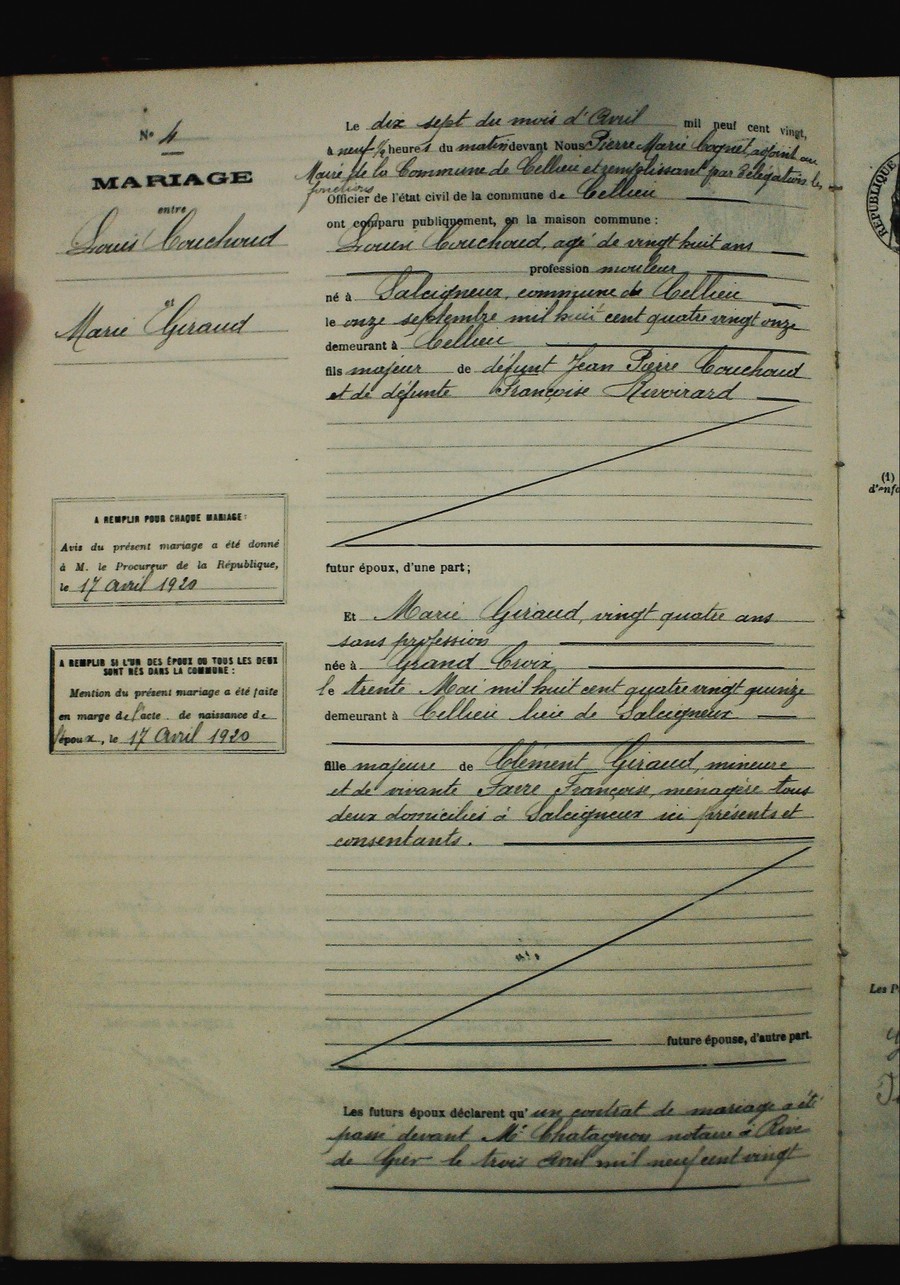 N° 4
MARIAGE
entre
Louis Couchoud
et
Marie Giraud
A REMPLIR POUR CHAQUE MARIAGE:
Avis du présent mariage a été donné
à M. le Procureur de la République,
le 17 avril 1920
A REMPLIR SI L'UN DES ÉPOUX OU TOUS LES DEUX
SONT NÉS DANS LA COMMUNE:
Mention du présent mariage a été faite
en marge de l'acte de naissance de
l'époux, le 17 Avril 1920
Le dix sept du mois d'Avril mil neuf cent vingt,
à neuf ½ heures du matin devant Nous Pierre Marie Coignet adjoint au
Maire de la Commune de Cellieu et remplissant par délégation les
fonctions
Officier de l'état civil de la commune de Cellieu
ont comparu publiquement, en la maison commune:
Louis Couchoud, agé de vingt huit ans
profession mouleur
né à Salcigneux, commune de Cellieu
le onze septembre mil huit cent quatre vingt onze
demeurant à Cellieu
fils majeur de défunt Jean Pierre Couchoud
et de défunte Françoise Rivoirard
futur époux, d'une part;
Et Marie Giraud, vingt quatre ans
sans profession
née à Grand Croix
le trente Mai mil huit cent quatre vingt quinze
demeurant à Cellieu lieu de Salcigneux
fille majeure de Clément Giraud, mineure
et de vivante Favre Françoise, ménagère tous
deux domiciliés à Salcigneux ici présents et
consentants.
future épouse, d'autre part.
Les futurs époux déclarent qu'un contrat de mariage a été
passé devant Me Chatagnon notaire à Rive
de Gier le trois avril mil neuf cent vingt
RÉPUBLIQUE
(1)
d'enfa
Les P